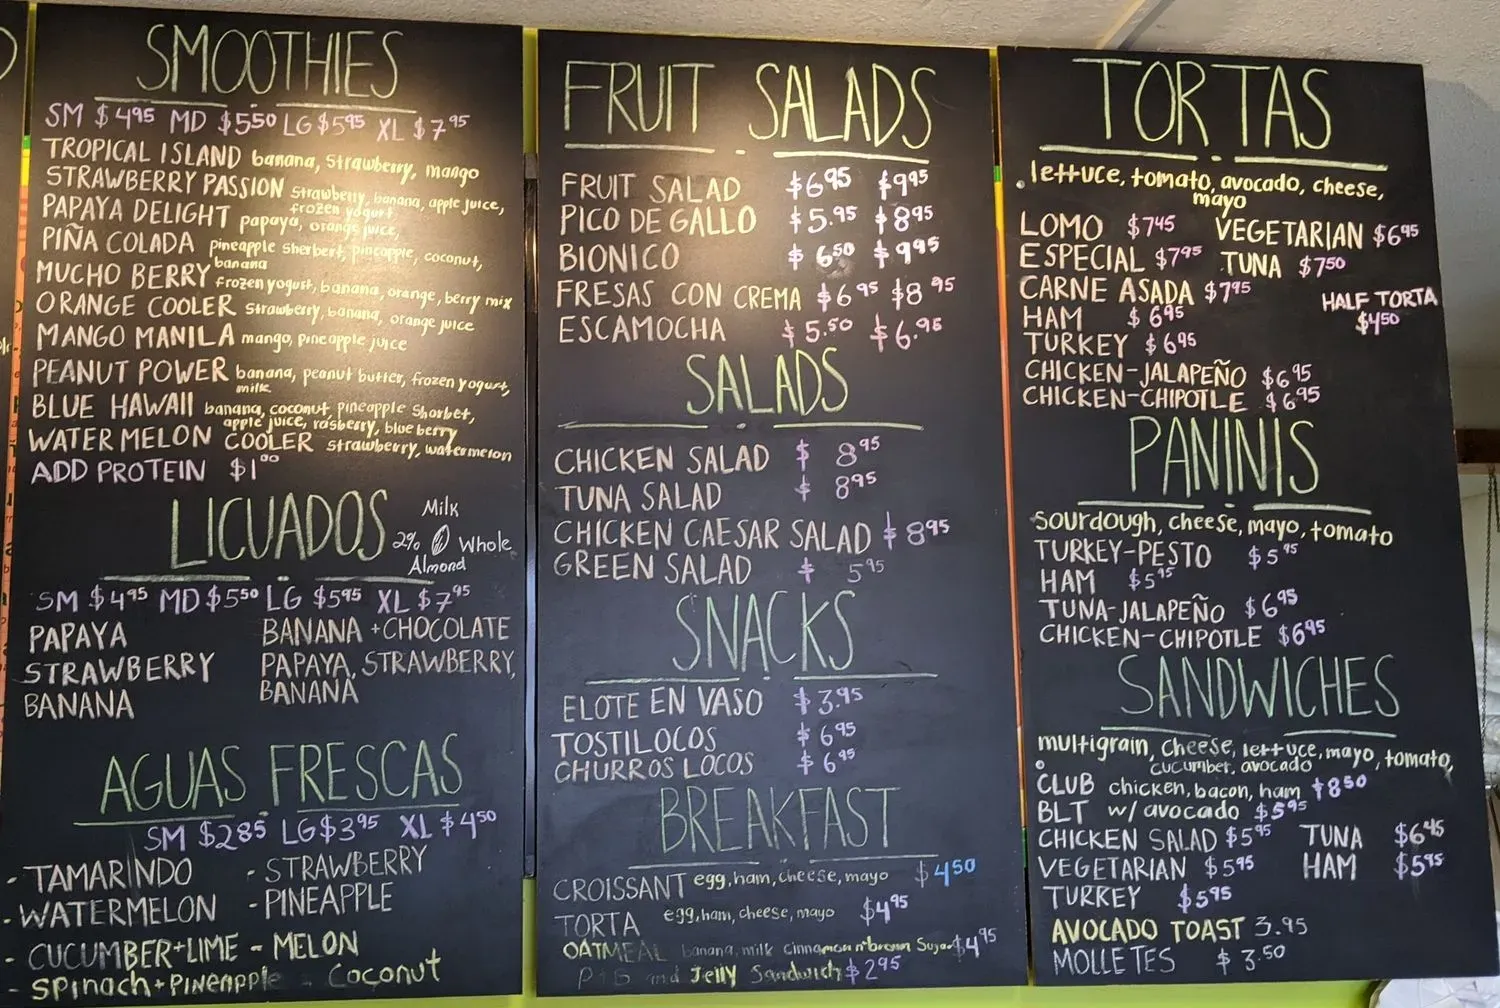 SMOOTHIES
SM $4.95 MD $5.50 LG $5.95 XL $7.95
TROPICAL ISLAND banana, strawberry, mango
STRAWBERRY PASSION strawberry, banana, apple juice,
frozen yogurt
PAPAYA DELIGHT papaya, orange juice,
PIÑA COLADA pineapple sherbert, pineapple, coconut,
banana
MUCHO BERRY frozen yogurt, banana, orange, berry mix
ORANGE COOLER strawberry, banana, orange juice
MANGO MANILA mango, pineapple juice
PEANUT POWER banana, peanut butter, frozen yogurt,
milk
BLUE HAWAII banana, coconut, pineapple Shorbet,
apple juice, rasberry, blueberry
WATERMELON COOLER strawberry, watermelon
ADD PROTEIN $1.00
LICUADOS
Milk
2% Whole
Almond
SM $4.95 MD $5.50 LG $5.95 XL $7.95
PAPAYA BANANA + CHOCOLATE
STRAWBERRY PAPAYA, STRAWBERRY,
BANANA BANANA
AGUAS FRESCAS
SM $2.85 LG $3.95 XL $4.50
- TAMARINDO - STRAWBERRY
- WATERMELON - PINEAPPLE
- CUCUMBER+LIME - MELON
- Spinach + Pineapple - Coconut
FRUIT SALADS
FRUIT SALAD $6.95 $9.95
PICO DE GALLO $5.95 $8.95
BIONICO $6.50 $9.95
FRESAS CON CREMA $6.95 $8.95
ESCAMOCHA $5.50 $6.95
SALADS
CHICKEN SALAD $8.95
TUNA SALAD $8.95
CHICKEN CAESAR SALAD $8.95
GREEN SALAD $5.95
SNACKS
ELOTE EN VASO $3.95
TOSTILOCOS $6.95
CHURROS LOCOS $6.95
BREAKFAST
CROISSANT egg, ham, cheese, mayo $4.50
TORTA egg, ham, cheese, mayo $4.95
OATMEAL banana, milk cinnamon n' brown Sugar $4.95
and Jelly Sandwich $2.95
TORTAS
lettuce, tomato, avocado, cheese,
mayo
LOMO $7.45 VEGETARIAN $6.95
ESPECIAL $7.95 TUNA $7.50
CARNE ASADA $7.95
HAM $6.95
HALF TORTA
$4.50
TURKEY $6.95
CHICKEN-JALAPEÑO $6.95
CHICKEN-CHIPOTLE $6.95
PANINIS
sourdough, cheese, mayo, tomato
TURKEY-PESTO $5.95
HAM $5.95
TUNA-JALAPEÑO $6.95
CHICKEN-CHIPOTLE $6.95
SANDWICHES
multigrain, cheese, lettuce, mayo, tomato,
cucumber, avocado
CLUB chicken, bacon, ham $8.50
BLT w/ avocado $5.95
CHICKEN SALAD $5.95 TUNA $6.45
VEGETARIAN $5.95 HAM $5.95
TURKEY $5.95
AVOCADO TOAST 3.95
MOLLETES $3.50